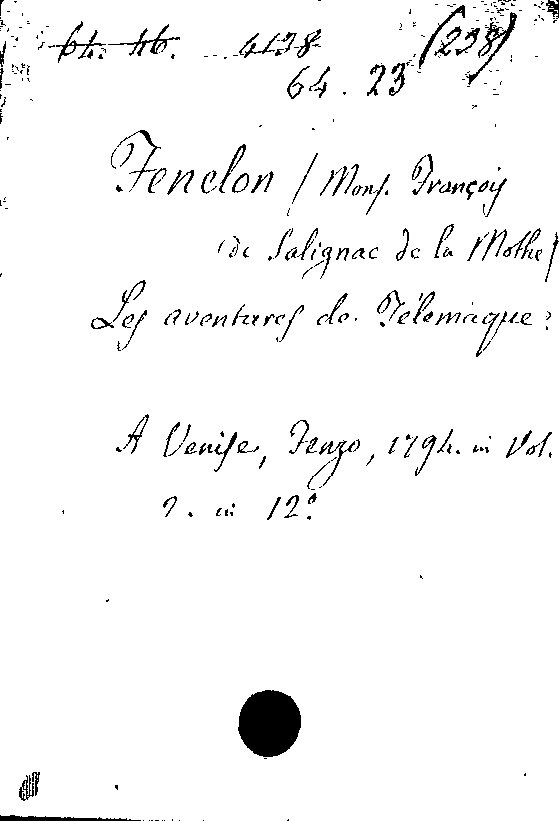 64. 46. 4138 (238)
64. 23
Fenelon / Mons. François
(de Salignac de la Mothe/
Les aventures de Télémaque.
A Venise, Fenzo, 1794. in Vol.
2. in 12º